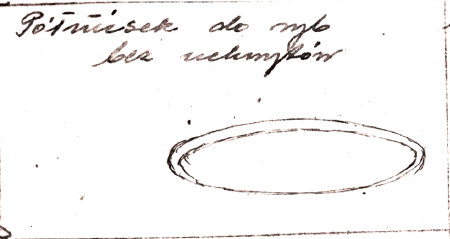 Półmisek do ryb
bez uchwytów